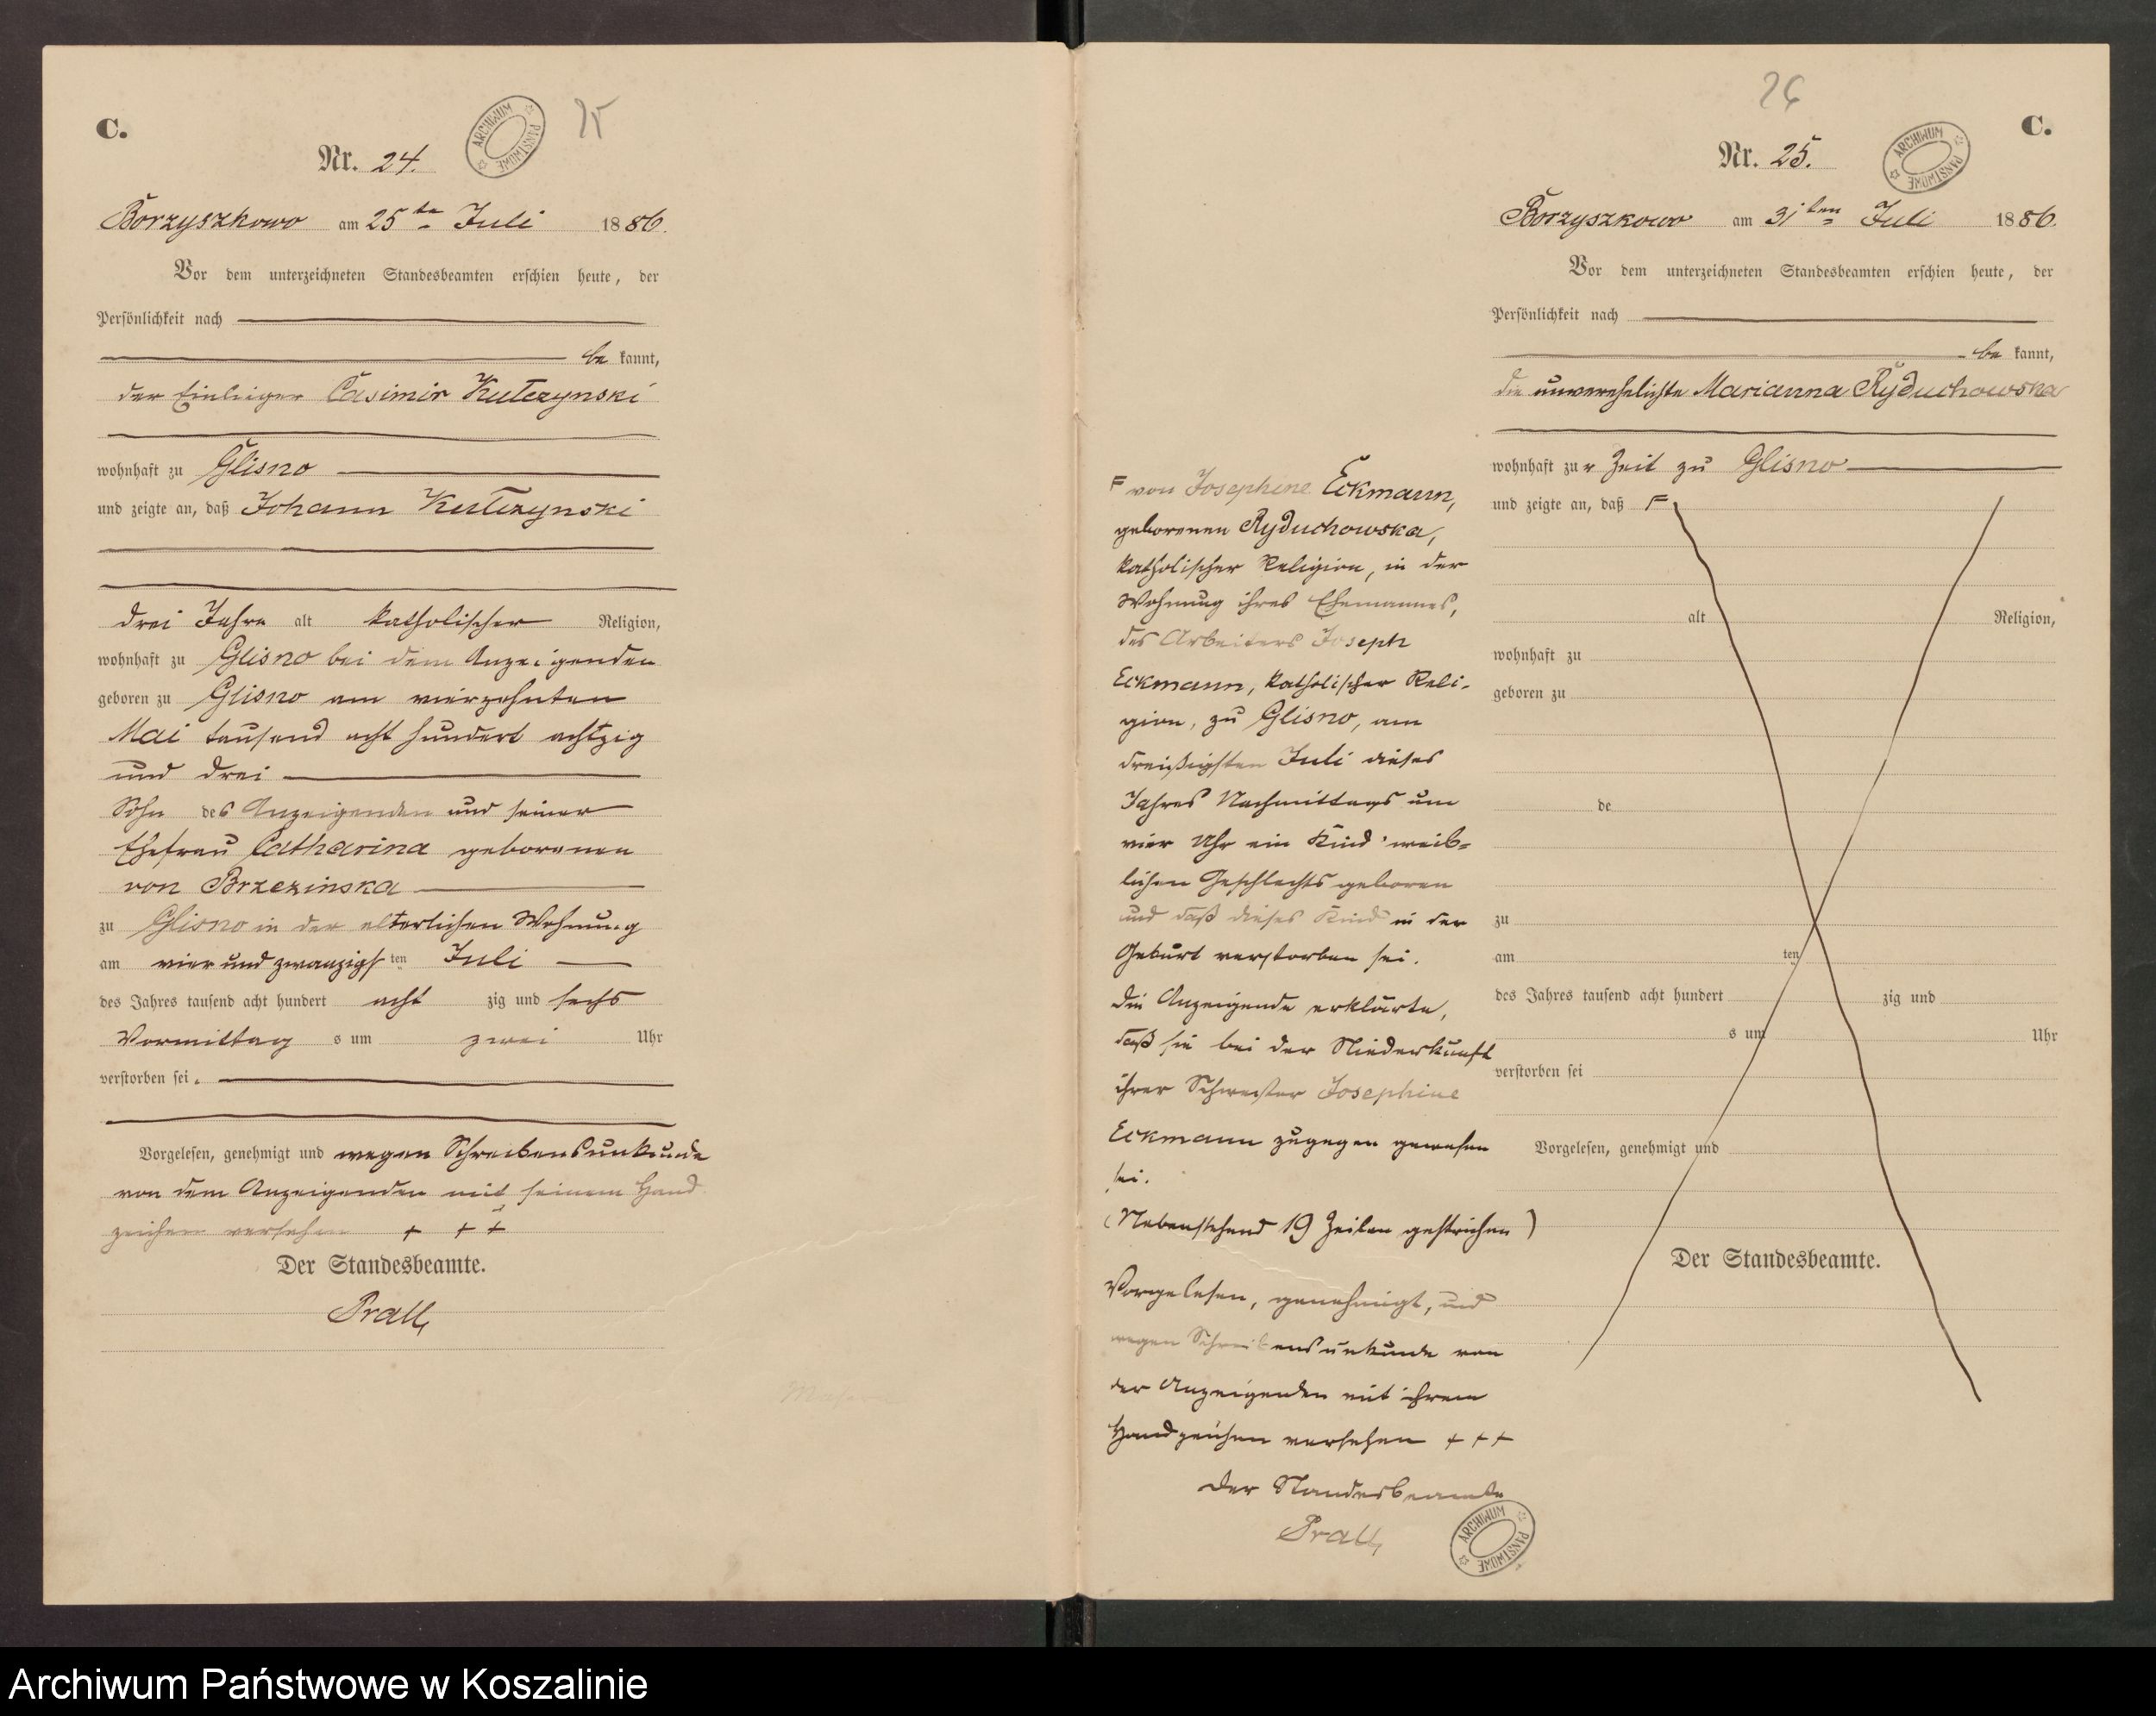 C.
25
Nr. 24.
ARCHIWUM PAŃSTWOWE
Borzyszkowo am 25ten Juli 1886.
Vor dem unterzeichneten Standesbeamten erschien heute, der
Persönlichkeit nach
bekannt,
der Einlieger Casimir Kulczynski
wohnhaft zu Glisno
und zeigte an, daß Johann Kulczynski
drei Jahre alt katholischer Religion,
wohnhaft zu Glisno bei dem Anzeigenden
geboren zu Glisno am vierzehnten
Mai tausend acht hundert achtzig
und drei
Sohn des Anzeigenden und seiner
Ehefrau Catharina geborenen
von Brzezinska
zu Glisno in der elterlichen Wohnung
am vier und zwanzigsten Juli
des Jahres tausend acht hundert achtzig und sechs
Vormittags um zwei Uhr
verstorben sei.
Vorgelesen, genehmigt und wegen Schreibensunkunde
von dem Anzeigenden mit seinem Hand
zeichen versehen + + +
Der Standesbeamte.
Prall
26
C.
Nr. 25.
ARCHIWUM PAŃSTWOWE
Borzyszkowo am 31ten Juli 1886.
Vor dem unterzeichneten Standesbeamten erschien heute, der
Persönlichkeit nach
bekannt,
die unverehelichte Marianna Ryduchowska
wohnhaft zur Zeit zu Glisno
und zeigte an, daß F
alt Religion,
wohnhaft zu
geboren zu
de
zu
am ten
des Jahres tausend acht hundert zig und
s um Uhr
verstorben sei
Vorgelesen, genehmigt und
Der Standesbeamte.
F von Josephine Eckmann,
geborenen Ryduchowska,
katholischer Religion, in der
Wohnung ihres Ehemannes,
des Arbeiters Joseph
Eckmann, katholischer Reli-
gion, zu Glisno, am
dreißigsten Juli dieses
Jahres Nachmittags um
vier Uhr ein Kind weib=
lichen Geschlechts geboren
und daß dieses Kind in der
Geburt verstorben sei.
Die Anzeigende erklärte,
daß sie bei der Niederkunft
ihrer Schwester Josephine
Eckmann zugegen gewesen
sei.
(Nebenstehend 19 Zeilen gestrichen)
Vorgelesen, genehmigt, und
wegen Schreibensunkunde von
der Anzeigenden mit ihrem
Handzeichen versehen + + +
Der Standesbeamte
Prall
ARCHIWUM PAŃSTWOWE
Archiwum Państwowe w Koszalinie